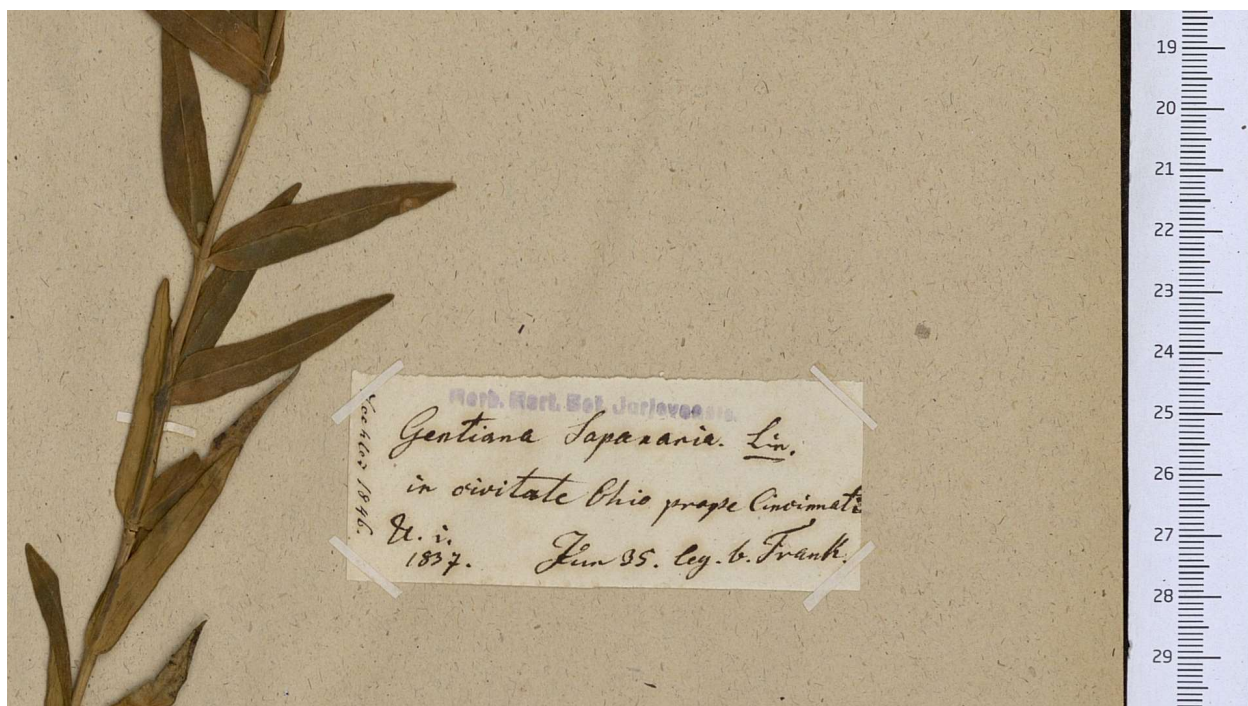 Herb. Hort. Bot. Jurjevensis.
Gentiana Saponaria. Lin.
in civitate Ohio prope Cincinnati
U. i.
1837. Jun 35. leg. b. Frank.
1846.
19
20
21
22
23
24
25
26
27
28
29